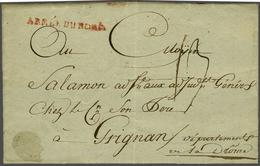 ARMÉE DU NORD
Au Citoyen
Salamon adj. aux adjud. Génér
Chez le Cn Son Père
à Grignan département
de la Drôme